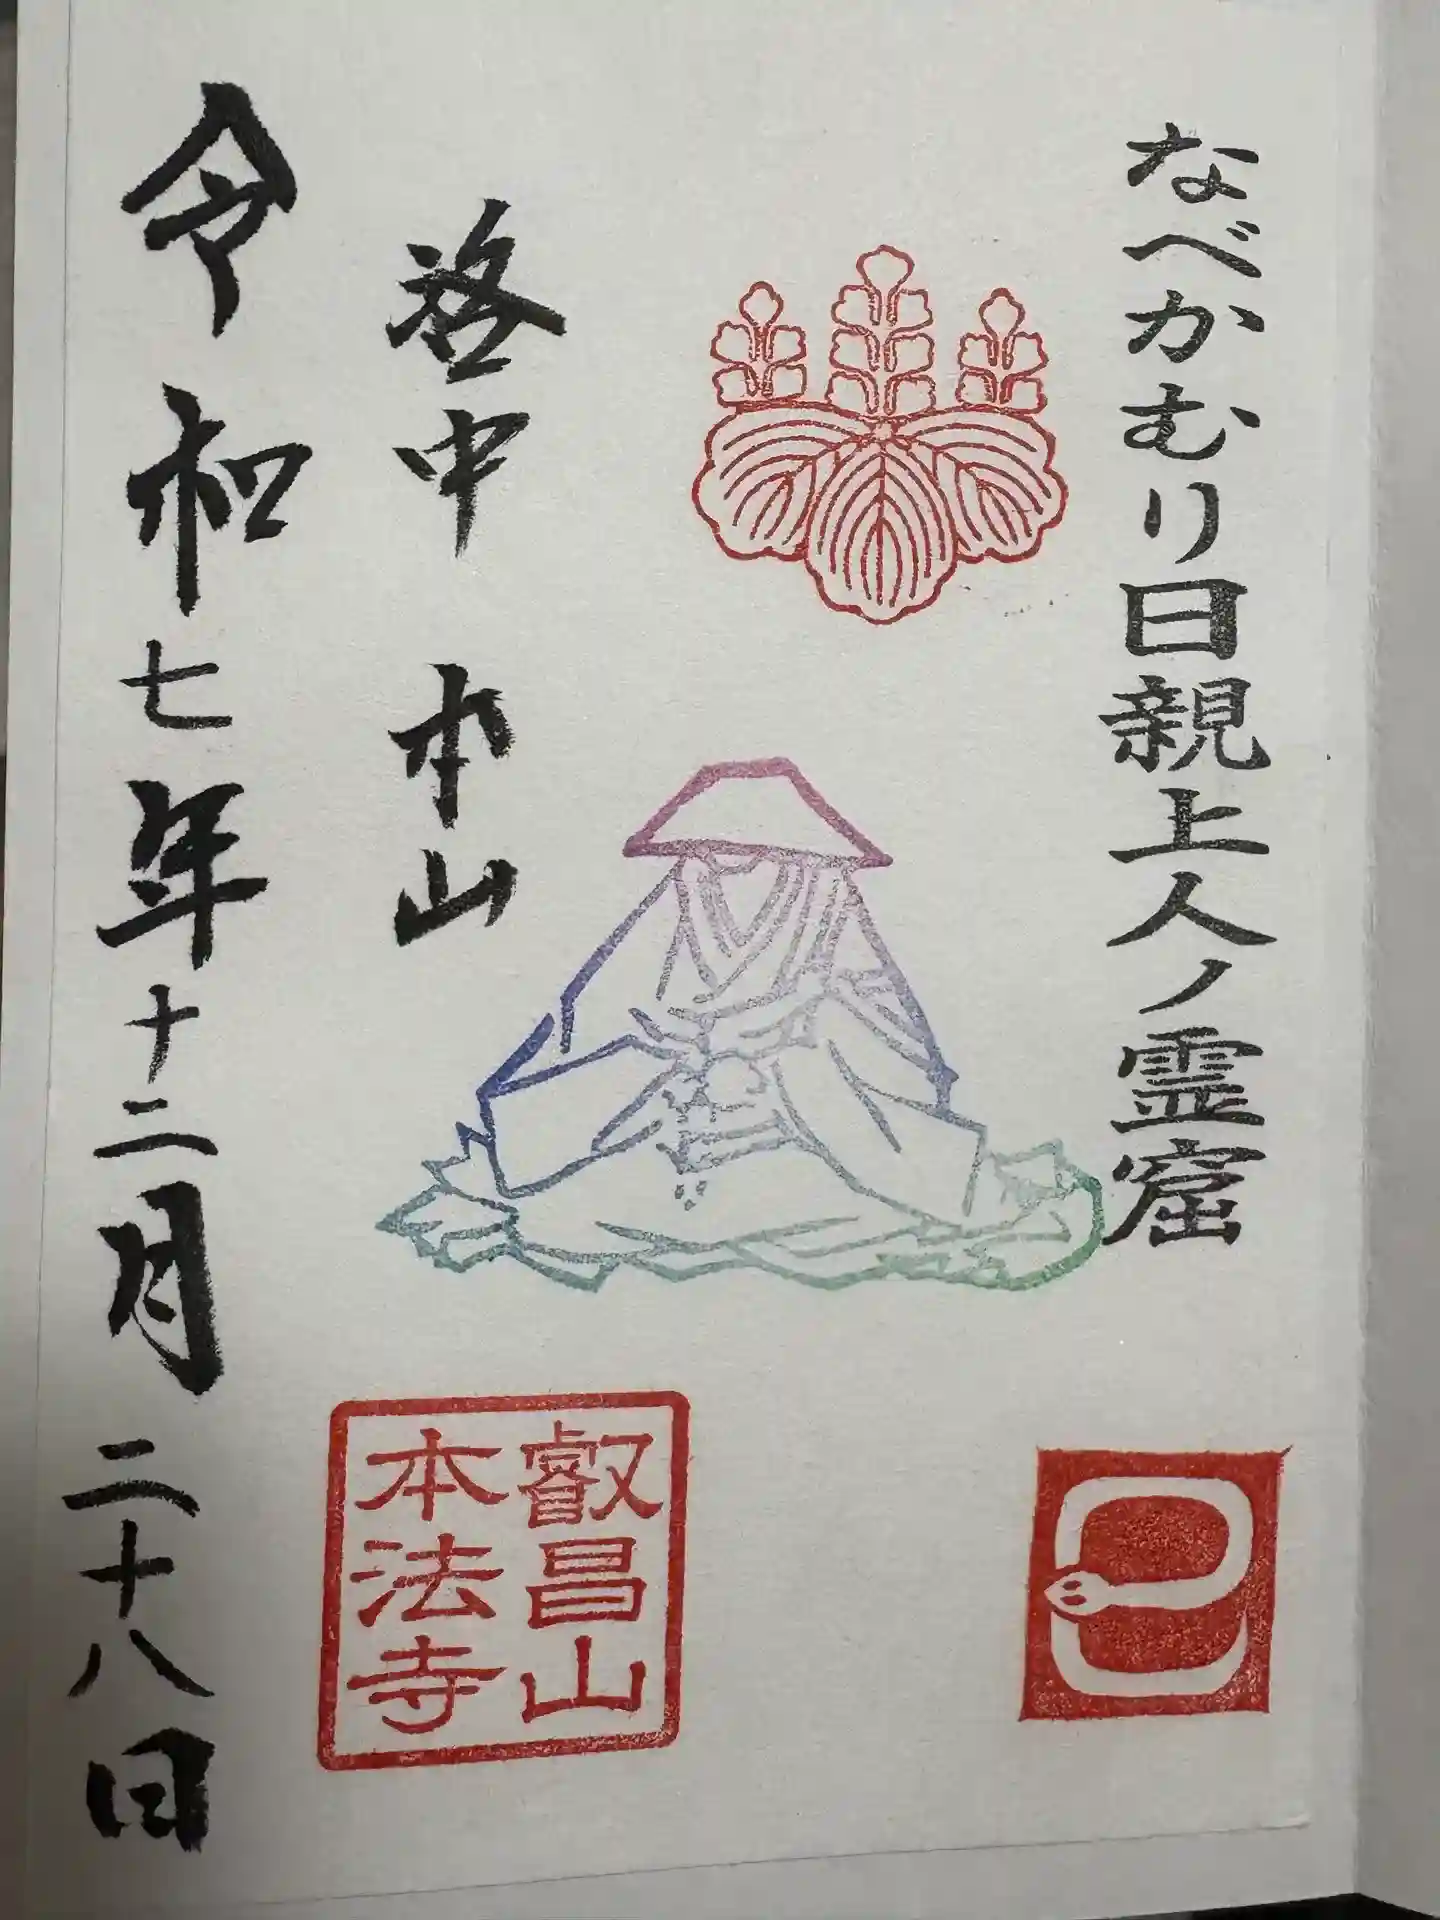 なべかむり日親上人ノ霊窟
洛中 本山
令和七年十二月二十八日
叡昌山
本法寺